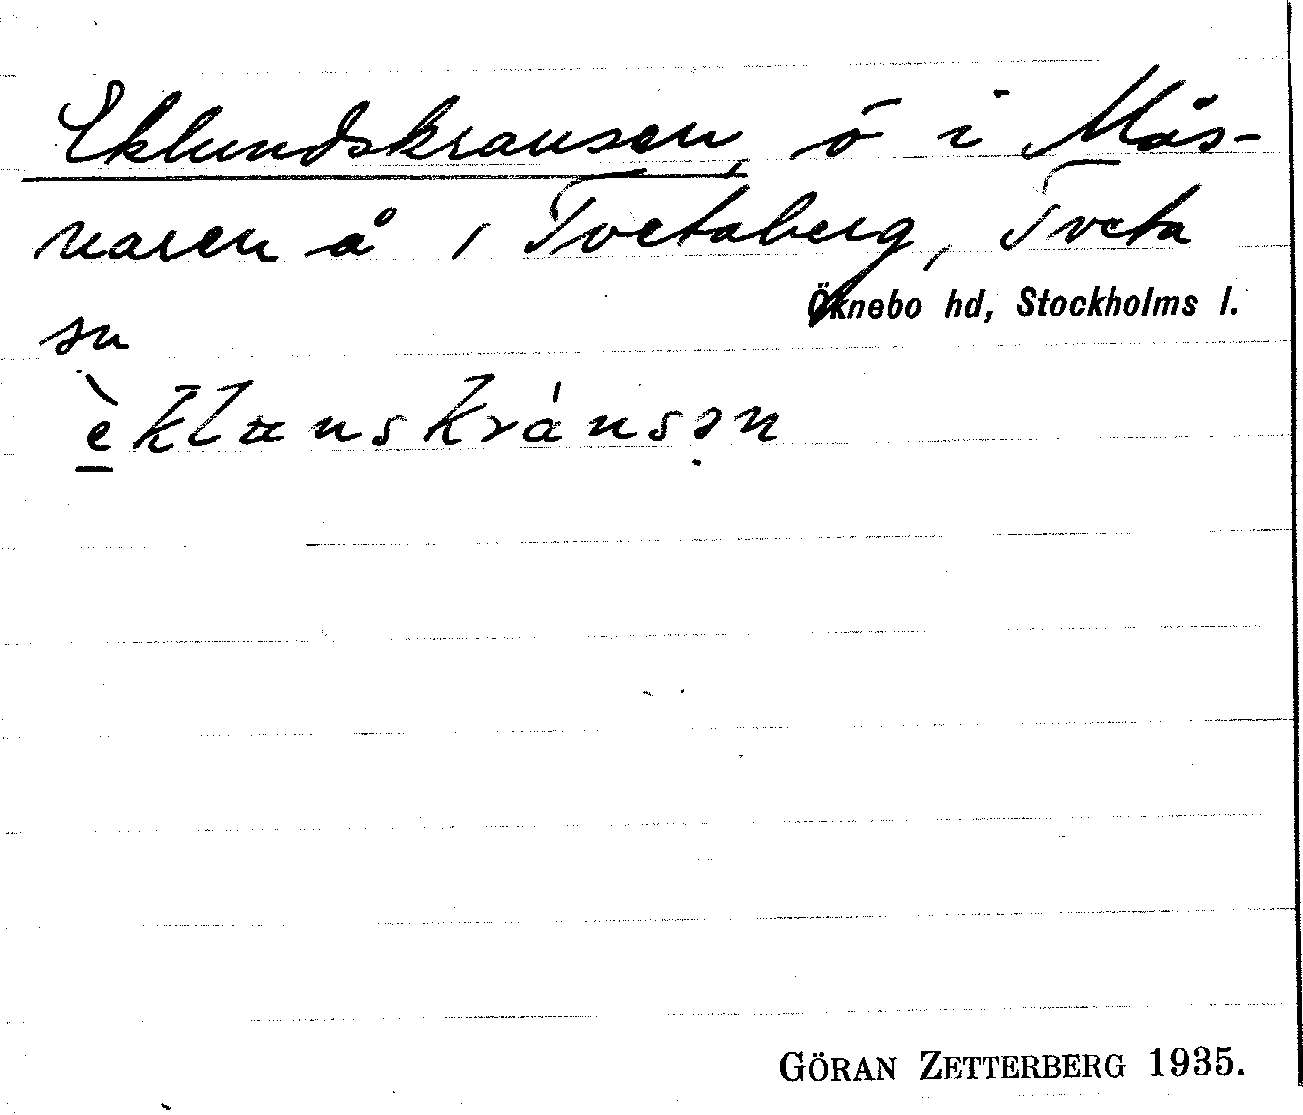 Eklundskransen, ö i Mås-
naren å 1 Tvetaberg, Tveta
sn
Öknebo hd, Stockholms l.
èklunskránsən
GÖRAN ZETTERBERG 1935.